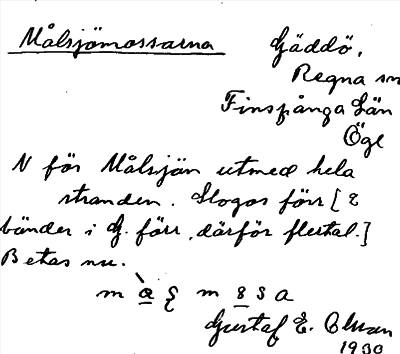 Målsjömossarna Gäddö,
Regna sn
Finspånga län
Ögl
N för Målsjön utmed hela
stranden. Slogos förr [2
bönder i G. förr, därför flertal.]
Betas nu.
Gustaf E. Olsson
1930